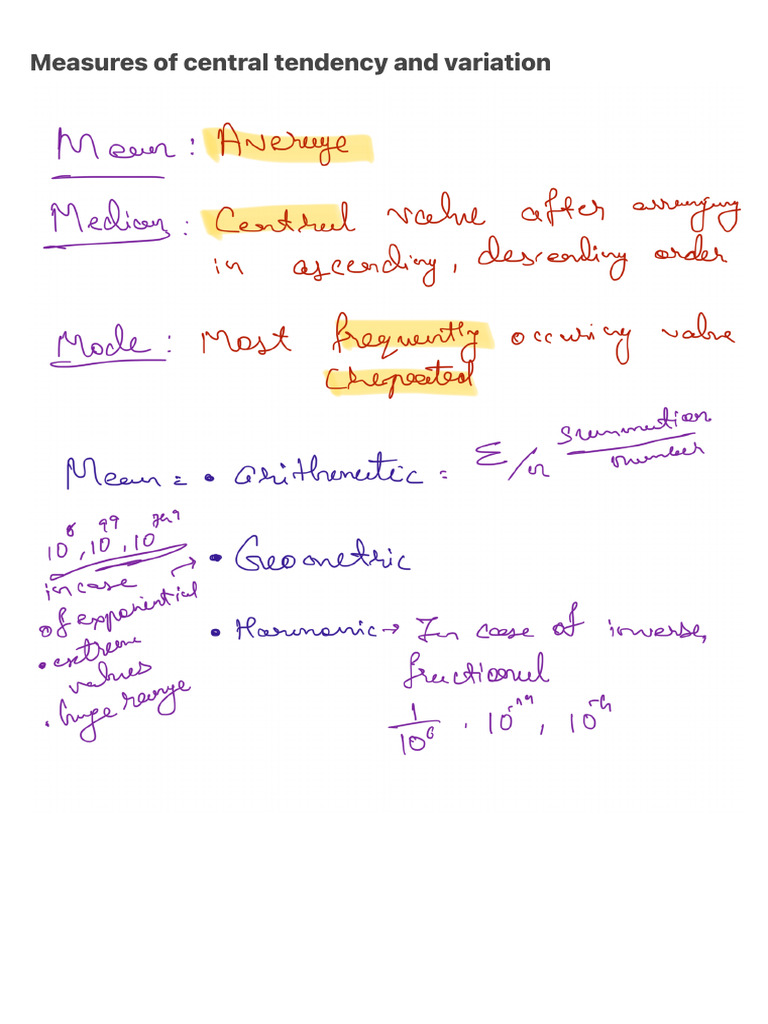 Measures of central tendency and variation
Mean : Average
Median : Central value after arranging
in ascending, descending order
Mode : Most frequently occuring value
(repeated
Mean = • arithmetic = Σ/n summation/number
10⁸, 10⁹⁹, 10
• Geometric
in case
of exponential
• extreme
values
• huge range
• Harmonic → In case of inverse,
fractional
1/10⁶ . 10⁻¹⁹, 10